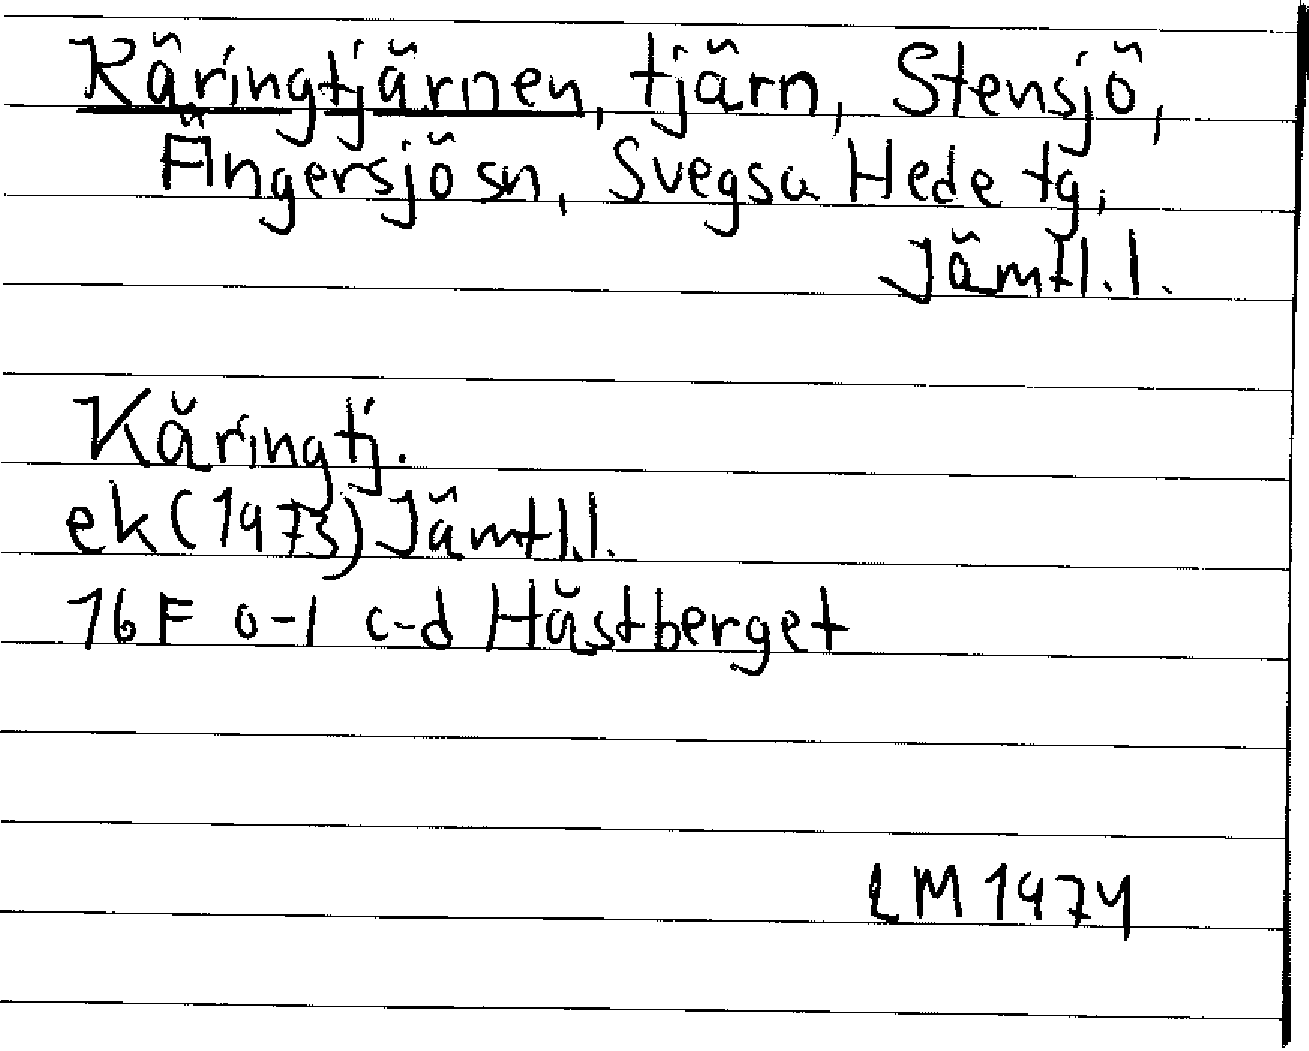 Käringtjärnen, tjärn, Stensjö,
Ängersjö sn, Svegs o Hede tg,
Jämtl. l.
Käringtj.
ek (1973) Jämtl. l.
16F 0-1 c-d Hästberget
LM 1974